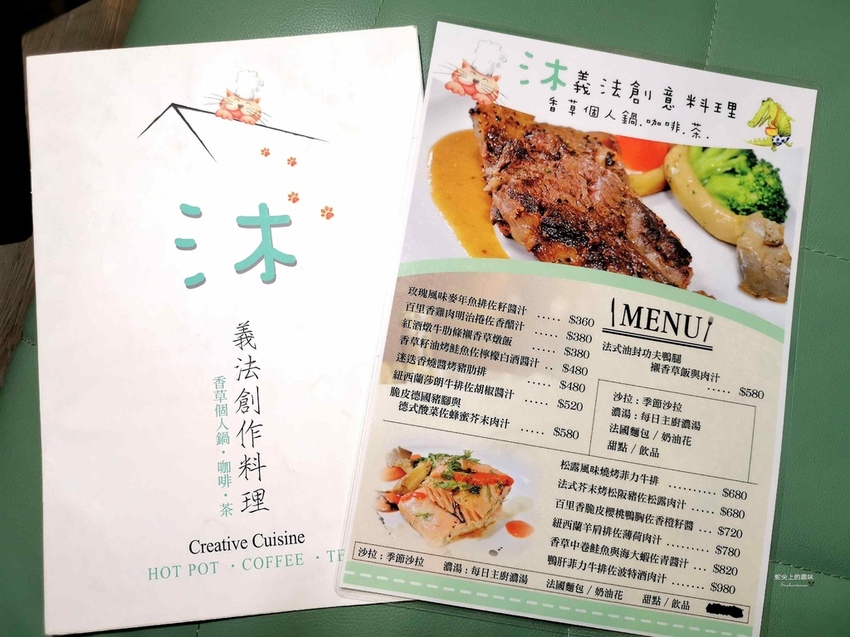 沐
義法創作料理
香草個人鍋・咖啡・茶
Creative Cuisine
HOT POT · COFFEE · TE
沐義法創意料理
香草個人鍋.咖啡.茶.
MENU
玫瑰風味麥年魚排佐籽醬汁 ..... $360
百里香雞肉明治捲佐香醋汁 ..... $380
紅酒燉牛肋條襯香草燉飯 ..... $380
香草籽油烤鮭魚佐檸檬白酒醬汁 .. $480
迷迭香燒醬烤豬肋排 ..... $480
紐西蘭莎朗牛排佐胡椒醬汁 ..... $520
脆皮德國豬腳與
德式酸菜佐蜂蜜芥末肉汁 ..... $580
法式油封功夫鴨腿
襯香草飯與肉汁 ..... $580
沙拉:季節沙拉
濃湯:每日主廚濃湯
法國麵包 / 奶油花
甜點 / 飲品
松露風味燒烤菲力牛排 .......... $680
法式芥末烤松阪豬佐松露肉汁 .... $680
百里香脆皮櫻桃鴨胸佐香橙醬 ... $720
紐西蘭羊肩排佐薄荷肉汁 ........ $780
香草中卷鮭魚與海大蝦佐青醬汁 ... $820
鴨肝菲力牛排佐波特酒肉汁 ....... $980
沙拉:季節沙拉 濃湯:每日主廚濃湯 法國麵包 / 奶油花 甜點 / 飲品
蛇尖上的趣味